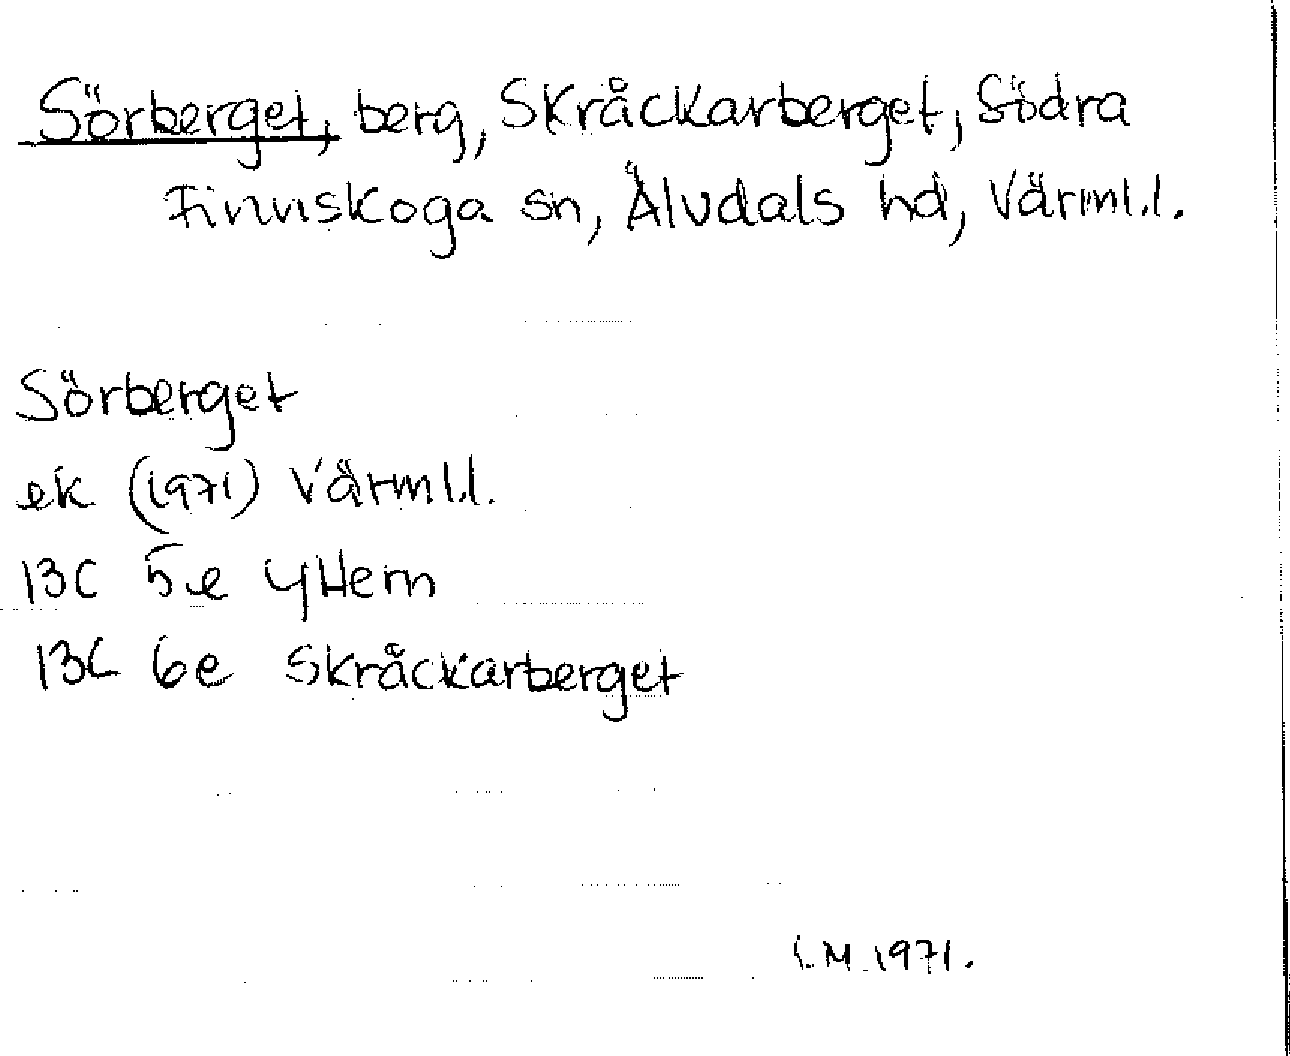 Sörberget, berg, Skråckarberget, Södra
Finnskoga sn, Älvdals hd, Värml.l.
Sörberget
ek (1971) Värml.l.
13C 5e YHern
13C 6e Skråckarberget
I.M. 1971.